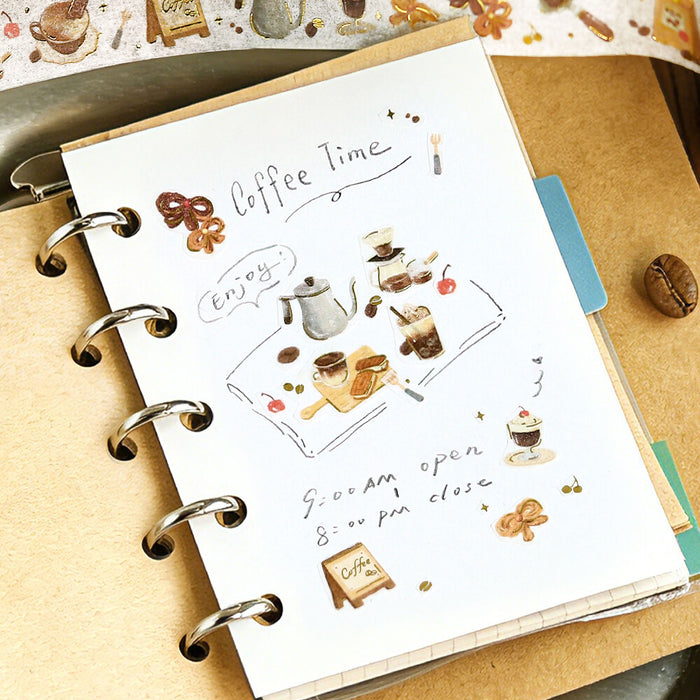 Coffee Time
Enjoy!
9:00 AM open
8:00 pm close
Coffee